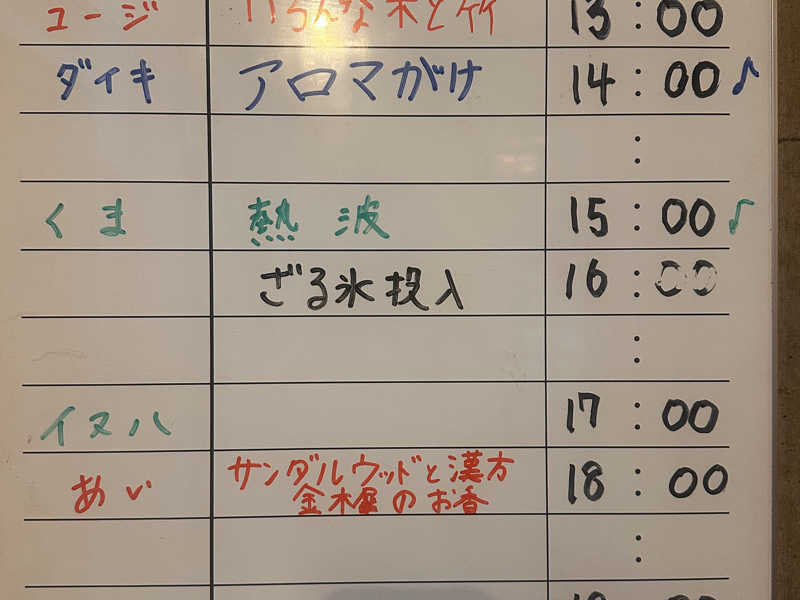 ユージ いろんな木と竹 13:00
ダイキ アロマがけ 14:00♪
:
くま 熱波 15:00♪
ざる氷投入 16:00
:
イヌハ 17:00
あい サンダルウッドと漢方 18:00
金木犀のお香
: